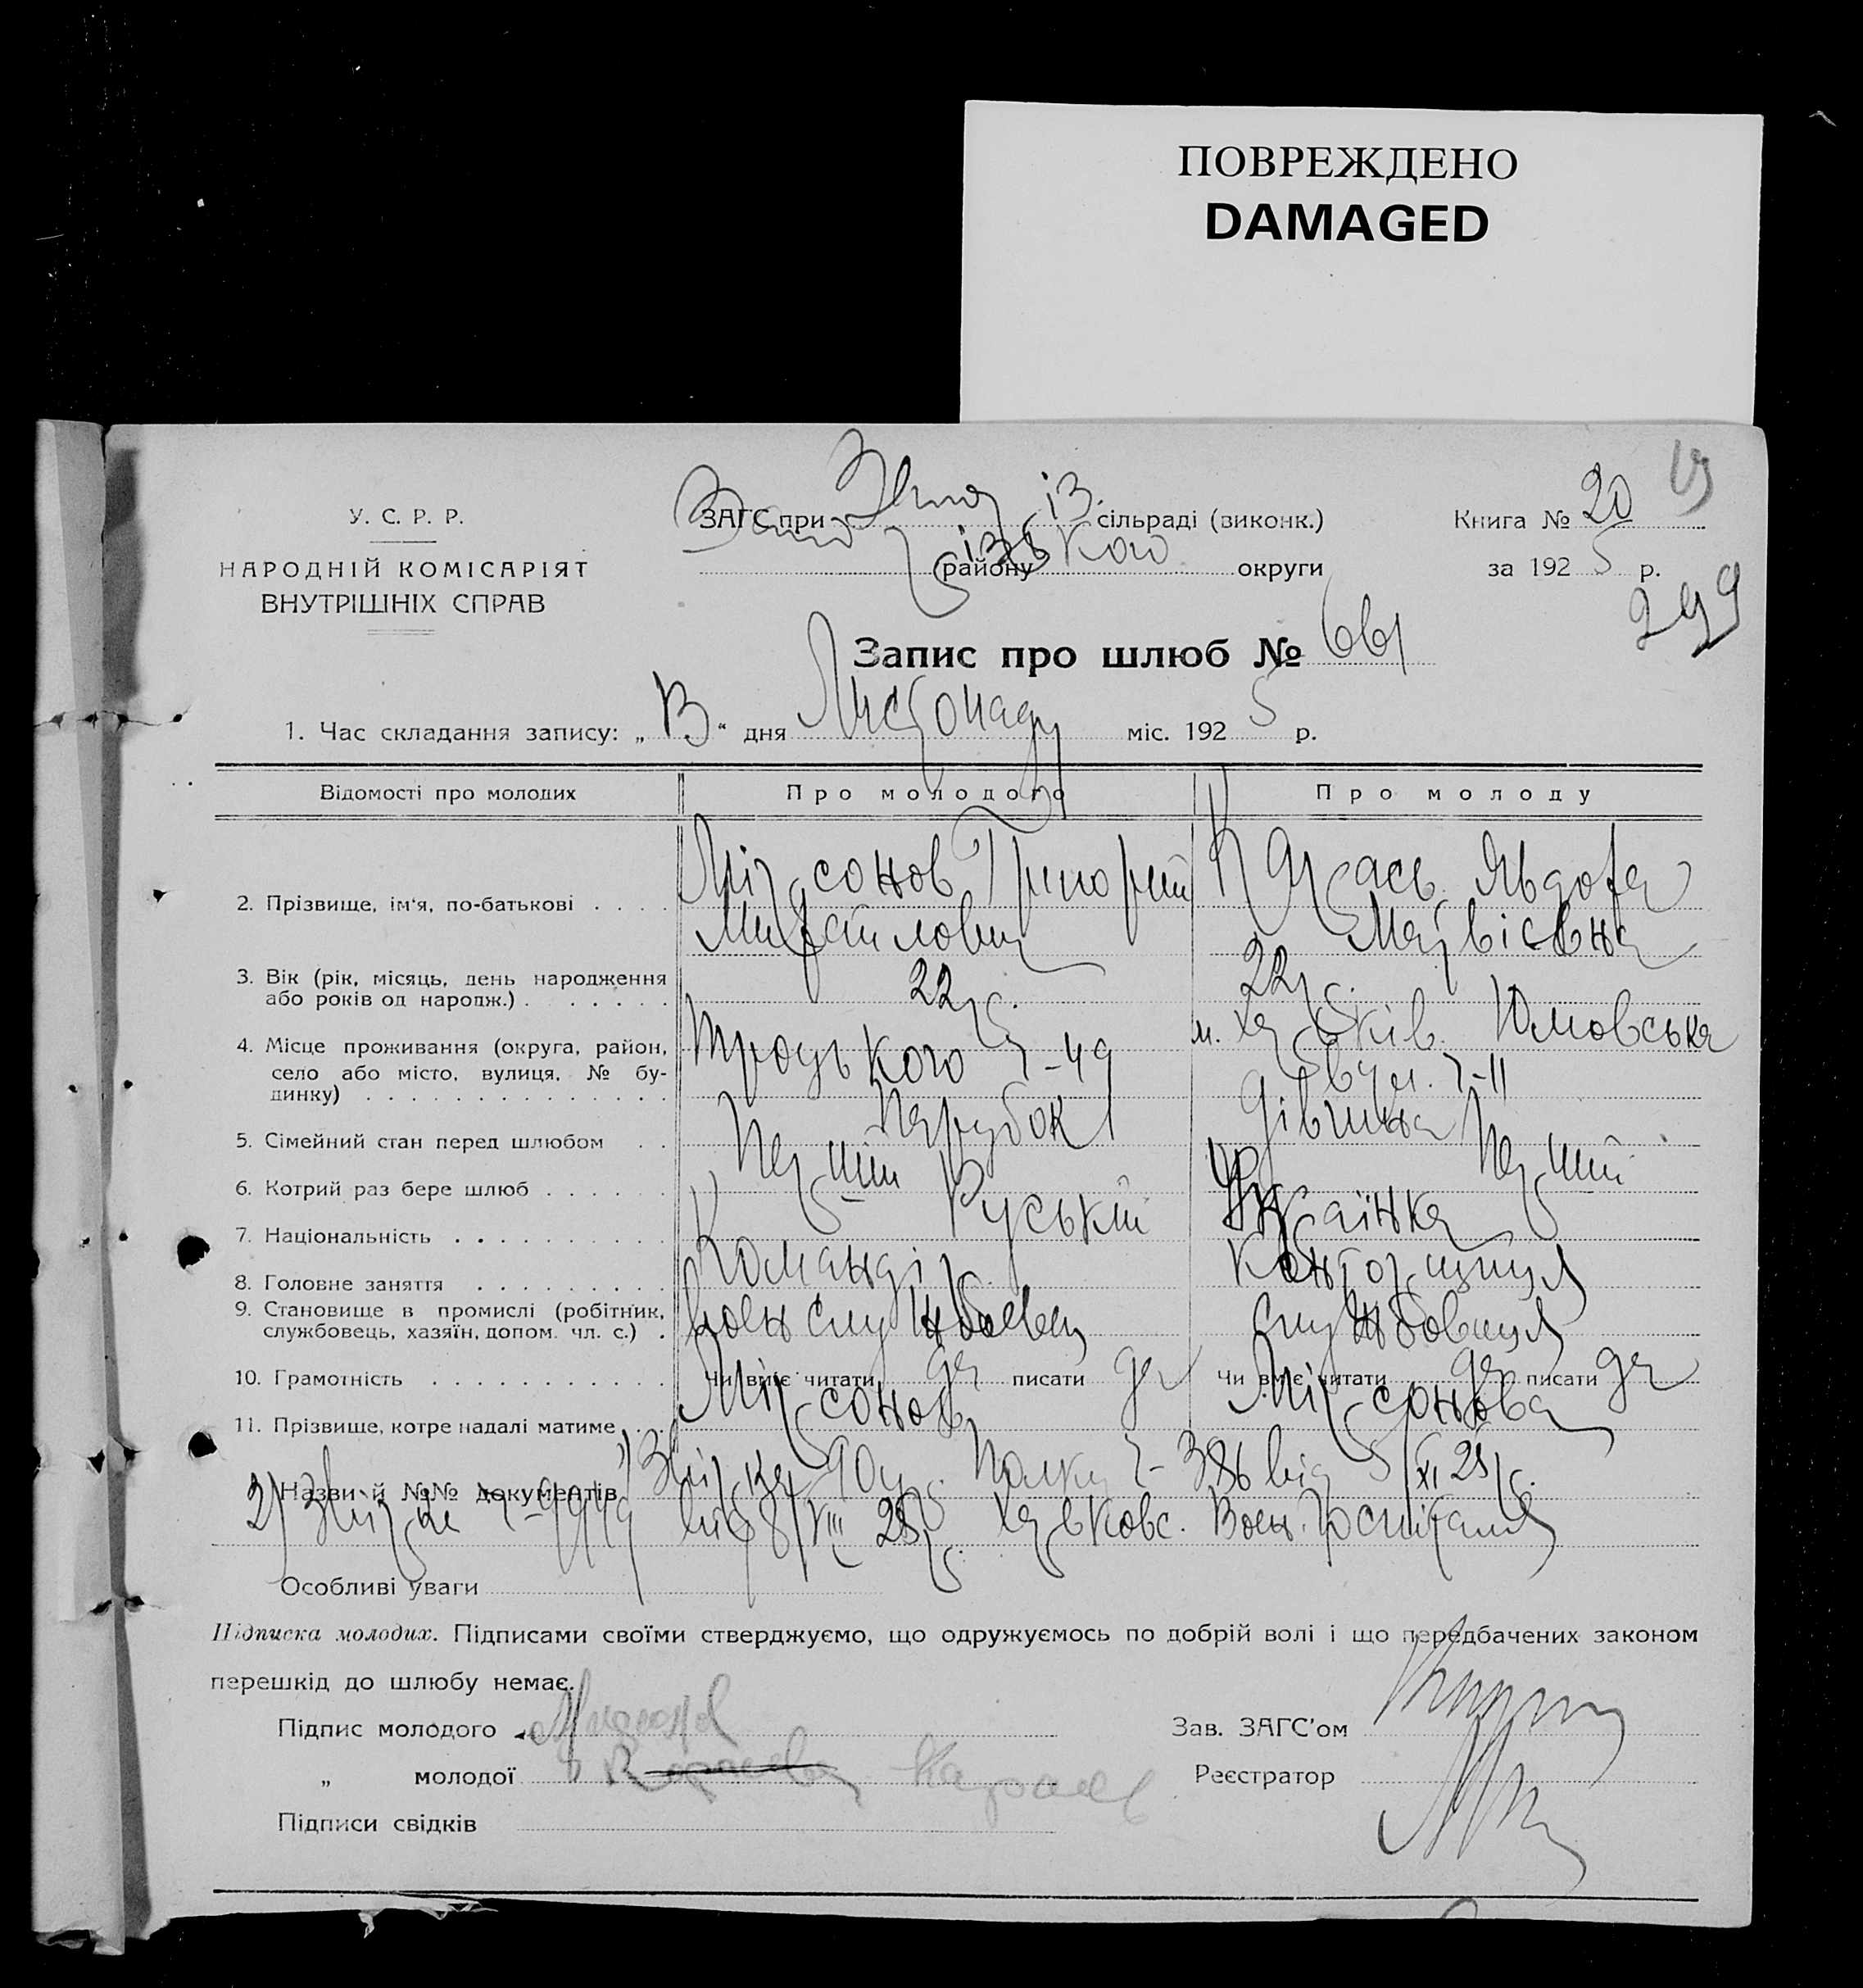 ПОВРЕЖДЕНО
DAMAGED
У. С. Р. Р.
НАРОДНІЙ КОМІСАРІЯТ
ВНУТРІШНІХ СПРАВ
ЗАГС при сільраді (виконк.)
району округи
Книга № 20
за 1925 р.
299
Запис про шлюб № 661
1. Час складання запису: „13“ дня Листопаду міс. 1925 р.
Відомості про молодих Про молодого Про молоду
2. Прізвище, ім'я, по-батькові Мірсонов Григорій Карась Явдоха
Михайлович Матвіевна
3. Вік (рік, місяць, день народження
або років од народж.) 22 р. 22 р.
4. Місце проживання (округа, район,
село або місто, вулиця, № будинку) Троцького 49 м. Харків. Юмовська
5. Сімейний стан перед шлюбом Парубок Дівчина
6. Котрий раз бере шлюб Перший Перший
7. Національність Руський Українка
8. Головне заняття Командір Конторщиця
9. Становище в промислі (робітник,
службовець, хазяїн, допом. чл. с.) военслужбовец службовиця
10. Грамотність Чи вміє читати да писати да Чи вміє читати да писати да
11. Прізвище, котре надалі матиме Мірсонов Мірсонова
Назви й №№ документів 1) Полку 386 від 5/XI 25 р.
2) від 8/VIII 25 р. Харьковс. Воен. Госпіталя
Особливі уваги
Підписка молодих. Підписами своїми стверджуємо, що одружуємось по добрій волі і що передбачених законом
перешкід до шлюбу немає.
Підпис молодого Зав. ЗАГС'ом
„ молодої Карась Реєстратор
Підписи свідків